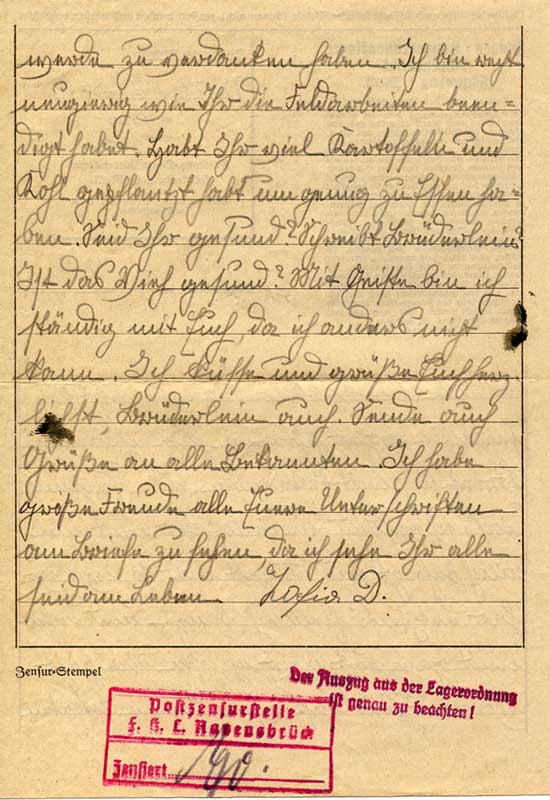 werde zu verdanken haben. Ich bin recht
neugierig wie Ihr die Feldarbeiten been=
digt habet. Habt Ihr viel Kartoffeln und
Kohl gepflantzt habt um genug zu Essen ha=
ben. Seid Ihr gesund? Schreibt Brüderlein?
Ist das Vieh gesund? Mit Geiste bin ich
ständig mit Euch, da ich anders nicht
kann. Ich küsse und grüße Euch herz
lichst, Brüderlein auch. Sende auch
Grüße an alle Bekannten. Ich habe
große Freude alle Euere Unterschriften
am Briefe zu sehen, da ich sehe Ihr alle
seid am Leben Zofia D.
Zensur-Stempel
Der Auszug aus der Lagerordnung
ist genau zu beachten!
Postzensurstelle
F. K. L. Ravensbrück
Zensiert